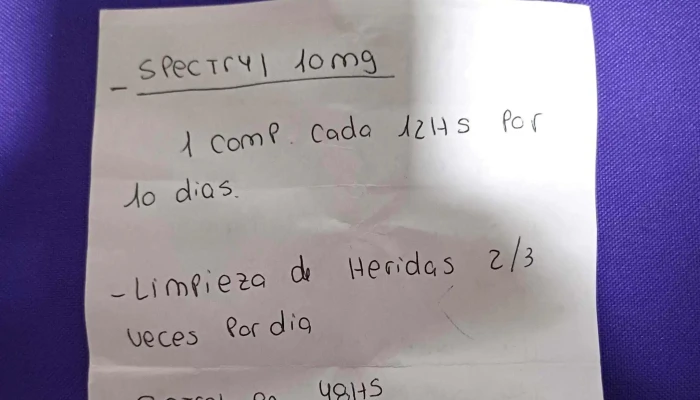 - SPECTRYL 10mg
1 comp. cada 12HS por
10 dias.
- Limpieza de Heridas 2/3
veces por dia
48HS